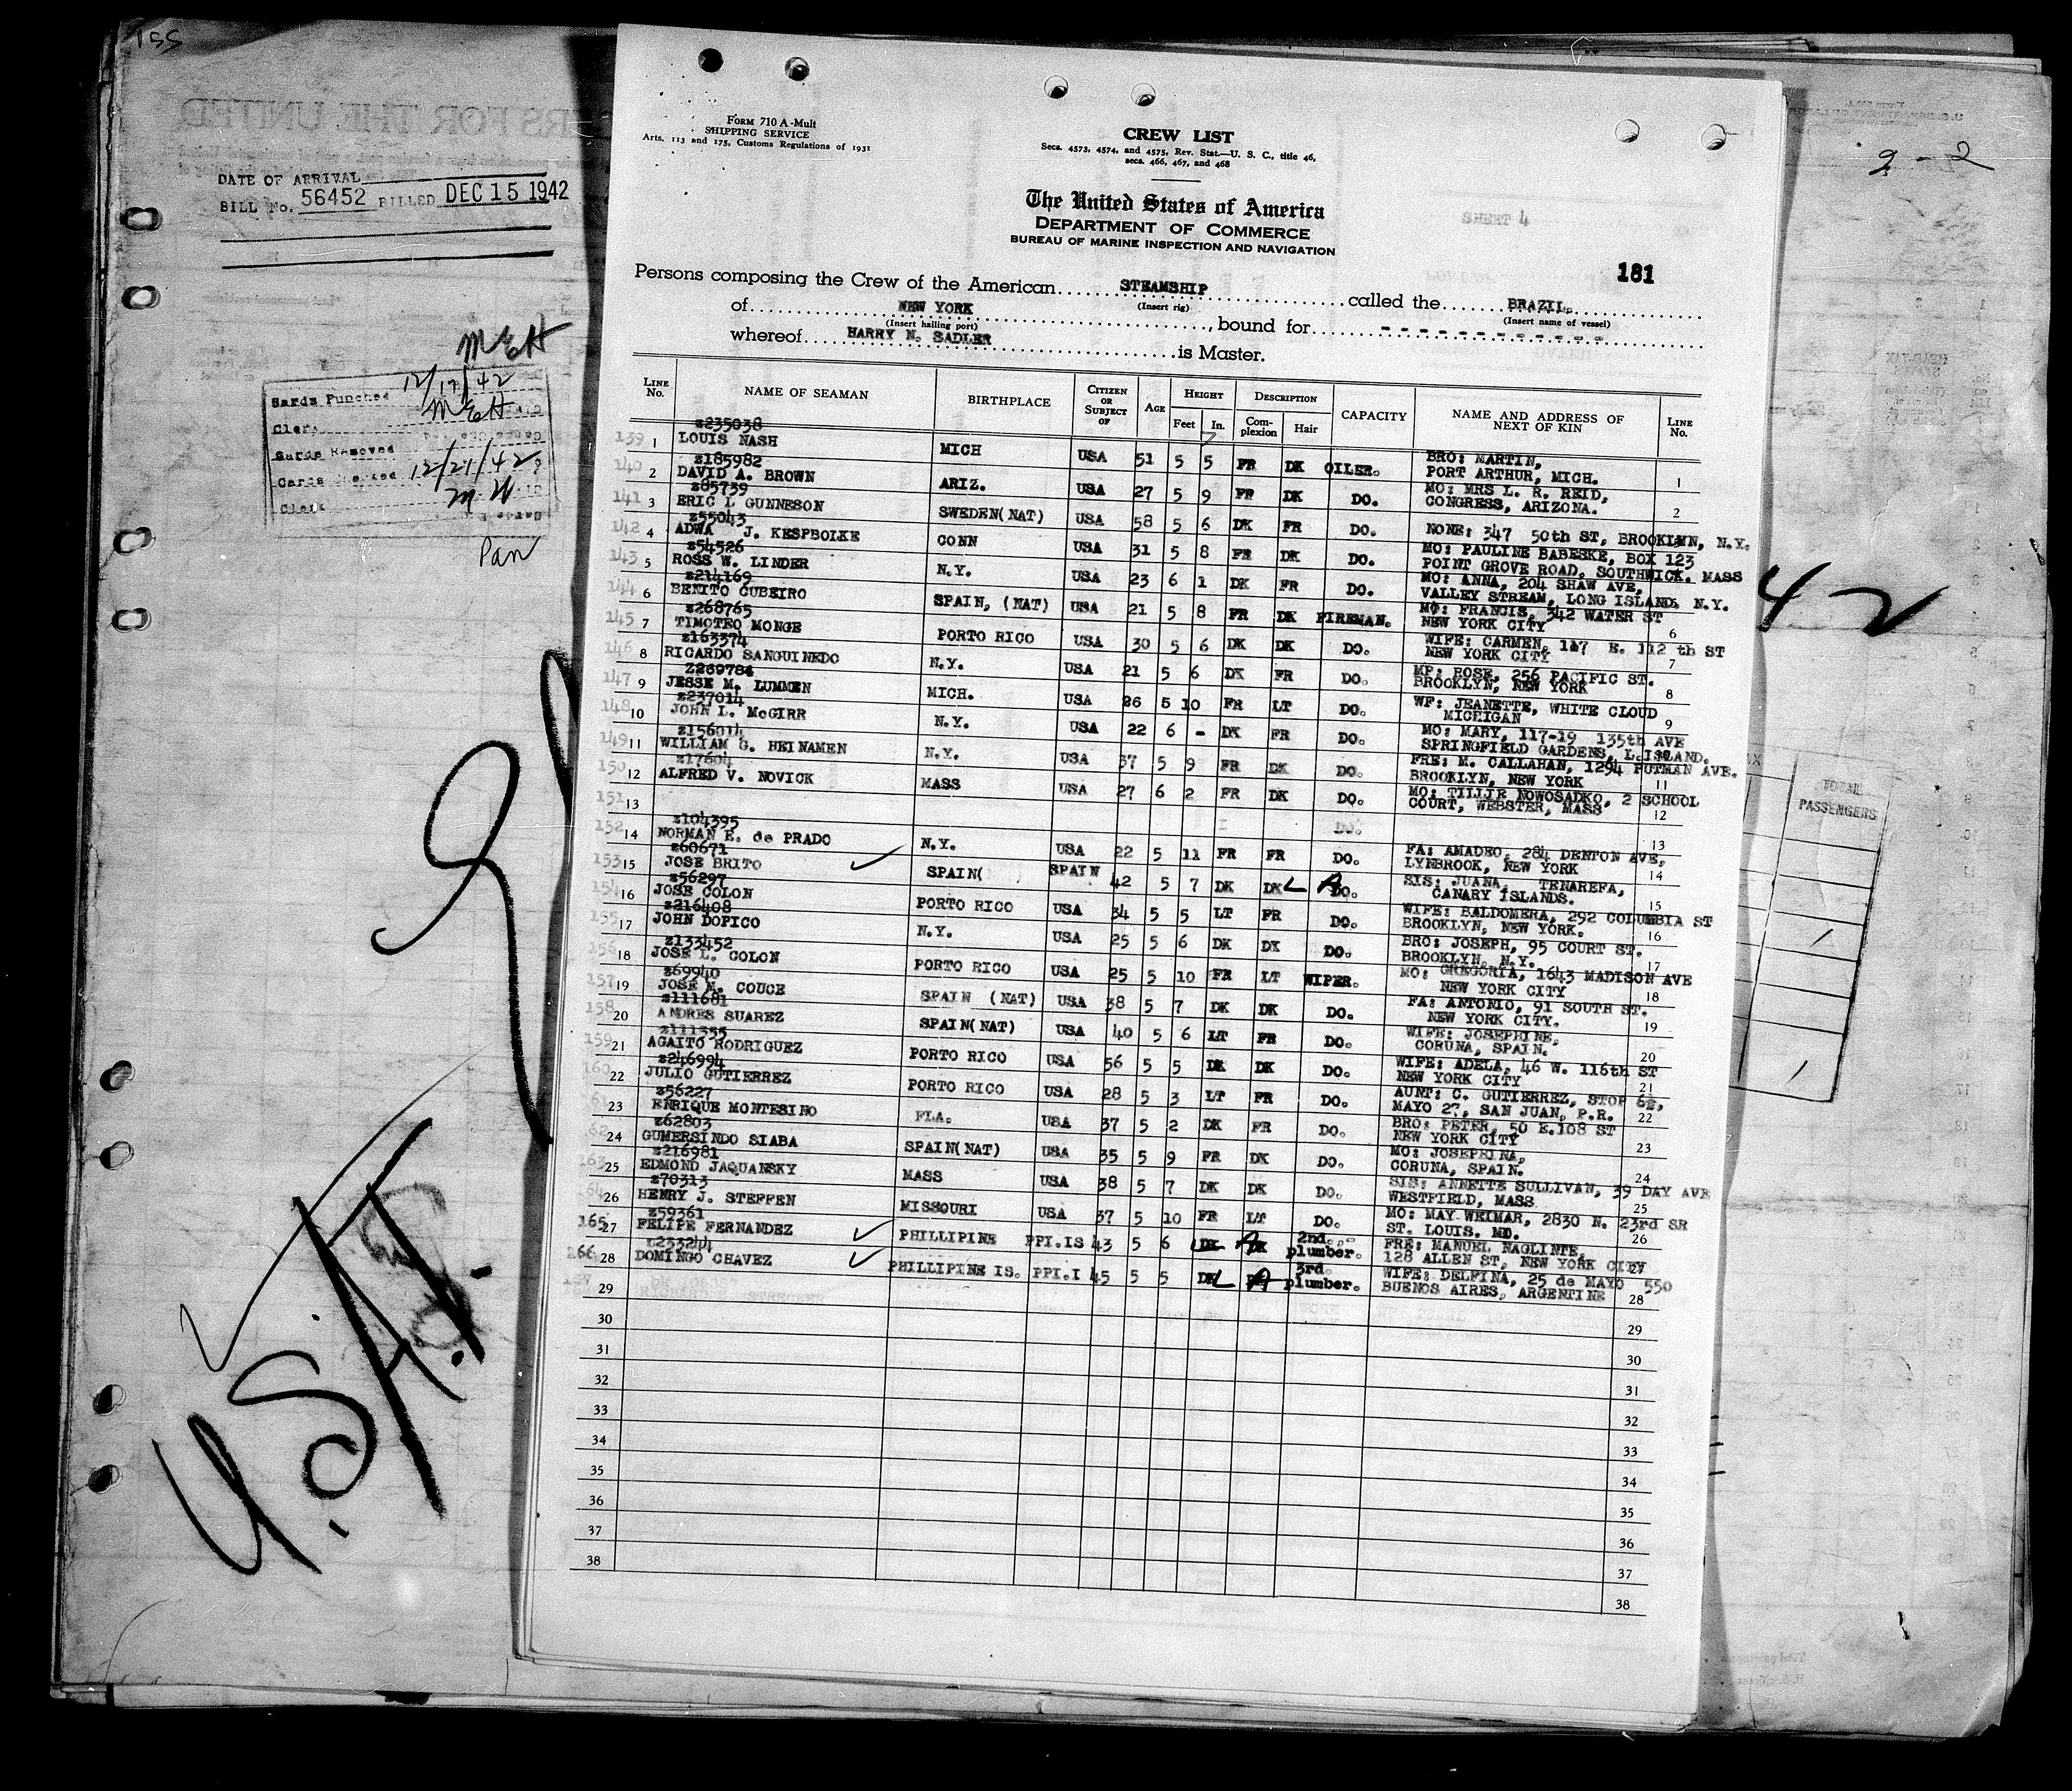 155
DATE OF ARRIVAL
BILL No. 56452 BILLED DEC 15 1942
MEH
12/17/42
Cards Punched
MEH
Clerk
Cards Removed
Cards 12/21/42
Clerk
Pan
U.S.A.T.
2-2
42
TOTAL
PASSENGERS
FORM 710 A-Mult
SHIPPING SERVICE
Arts. 113 and 175, Customs Regulations of 1931
CREW LIST
Secs. 4573, 4574, and 4575, Rev. Stat.—U. S. C., title 46,
secs. 466, 467, and 468
The United States of America
DEPARTMENT OF COMMERCE
BUREAU OF MARINE INSPECTION AND NAVIGATION
SHEET 4
181
Persons composing the Crew of the American STEAMSHIP called the BRAZIL.
(Insert rig) (Insert name of vessel)
of NEW YORK, bound for - - - - - - - - - - - -
(Insert hailing port)
whereof HARRY N. SADLER is Master.
LINE No. NAME OF SEAMAN BIRTHPLACE CITIZEN OR SUBJECT OF AGE HEIGHT Feet In. DESCRIPTION Complexion Hair CAPACITY NAME AND ADDRESS OF NEXT OF KIN LINE No.
z235038
139 1 LOUIS NASH MICH USA 51 5 5 FR DK OILER. BRO: MARTIN,
PORT ARTHUR, MICH. 1
z185982
140 2 DAVID A. BROWN ARIZ. USA 27 5 9 FR DK DO. MO: MRS L. R. REID,
CONGRESS, ARIZONA. 2
z85739
141 3 ERIC L GUNNESON SWEDEN(NAT) USA 58 5 6 DK FR DO. NONE: 347 50th ST, BROOKLYN, N.Y.
z55043
142 4 ADWA J. KESPBOLKE CONN USA 31 5 8 FR DK DO. MO: PAULINE BABESKE, BOX 123
POINT GROVE ROAD, SOUTHWICK. MASS
z54526
143 5 ROSS W. LINDER N.Y. USA 23 6 1 DK FR DO. MO: ANNA, 204 SHAW AVE,
VALLEY STREAM, LONG ISLAND, N.Y.
z214169
144 6 BENITO CUBEIRO SPAIN, (NAT) USA 21 5 8 FR DK FIREMAN. MO: FRANCIS, 342 WATER ST
NEW YORK CITY 6
z268765
145 7 TIMOTEO MONGE PORTO RICO USA 30 5 6 DK DK DO. WIFE: CARMEN, 117 E. 112 th ST
NEW YORK CITY 7
z163374
146 8 RICARDO SANGUINEDO N.Y. USA 21 5 6 DK FR DO. MP: ROSE, 256 PACIFIC ST.
BROOKLYN, NEW YORK 8
Z269784
147 9 JESSE M. LUMMEN MICH. USA 26 5 10 FR LT DO. WF: JEANETTE, WHITE CLOUD
MICHIGAN 9
z237014
148 10 JOHN L. McGIRR N.Y. USA 22 6 - DK FR DO. MO: MARY, 117-19 135th AVE
SPRINGFIELD GARDENS, L.ISLAND.
z156014
149 11 WILLIAM G. HEINAMEN N.Y. USA 37 5 9 FR DK DO. FRE: M. CALLAHAN, 1294 PUTMAN AVE.
BROOKLYN, NEW YORK 11
z17604
150 12 ALFRED V. NOVICK MASS USA 27 6 2 FR DK DO. MO: TILLIE NOWOSADKO, 2 SCHOOL
COURT, WEBSTER, MASS 12
151 13 DO. 13
z104395
152 14 NORMAN E. de PRADO N.Y. USA 22 5 11 FR FR DO. FA: AMADEO, 284 DENTON AVE,
LYNBROOK, NEW YORK 14
z60671
153 15 JOSE BRITO ✓ SPAIN( SPAIN 42 5 7 DK DK L A DO. SIS: JUANA, TENAREFA,
CANARY ISLANDS. 15
z56297
154 16 JOSE COLON PORTO RICO USA 34 5 5 LT FR DO. WIFE: BALDOMERA, 292 COLUMBIA ST
BROOKLYN, NEW YORK. 16
z216408
155 17 JOHN DOPICO N.Y. USA 25 5 6 DK DK DO. BRO: JOSEPH, 95 COURT ST.
BROOKLYN, N.Y. 17
z133452
156 18 JOSE L. COLON PORTO RICO USA 25 5 10 FR LT WIPER. MO: GREGORIA, 1643 MADISON AVE
NEW YORK CITY 18
z69940
157 19 JOSE M. COUCE SPAIN (NAT) USA 38 5 7 DK DK DO. FA: ANTONIO, 91 SOUTH ST.
NEW YORK CITY. 19
z111681
158 20 ANDRES SUAREZ SPAIN(NAT) USA 40 5 6 LT FR DO. WIFE: JOSEPHINE,
CORUNA, SPAIN. 20
z111355
159 21 AGAITO RODRIGUEZ PORTO RICO USA 56 5 5 DK DK DO. WIFE: ADELA, 46 W. 116th ST
NEW YORK CITY 21
z246994
160 22 JULIO GUTIERREZ PORTO RICO USA 28 5 3 LT FR DO. AUNT: C. GUTIERREZ, STOP 6½,
MAYO 27, SAN JUAN, P.R. 22
z56227
161 23 ENRIQUE MONTESINO FLA. USA 37 5 2 DK FR DO. BRO: PETER, 50 E.108 ST
NEW YORK CITY 23
z62803
162 24 GUMERSINDO SIABA SPAIN(NAT) USA 35 5 9 FR DK DO. MO: JOSEPHINA,
CORUNA, SPAIN. 24
z216981
163 25 EDMOND JAQUANSKY MASS USA 38 5 7 DK DK DO. SIS: ANNETTE SULLIVAN, 39 DAY AVE
WESTFIELD, MASS 25
z70313
164 26 HENRY J. STEFFEN MISSOURI USA 37 5 10 FR LT DO. MO: MAY WEIMAR, 2830 N. 23rd SR
ST. LOUIS. MO. 26
z59361
165 27 FELIPE FERNANDEZ ✓ PHILLIPINE PPI.IS 43 5 6 L A 2nd. plumber. FRE: MANUEL NAGLINTE,
128 ALLEN ST, NEW YORK CITY 27
z233244
166 28 DOMINGO CHAVEZ ✓ PHILLIPINE IS. PPI.I 45 5 5 DK L A 3rd. plumber. WIFE: DELFINA, 25 de MAYO 550
BUENOS AIRES, ARGENTINE 28
29
30 29
31 30
32 31
33 32
34 33
35 34
36 35
37 36
38 37
38